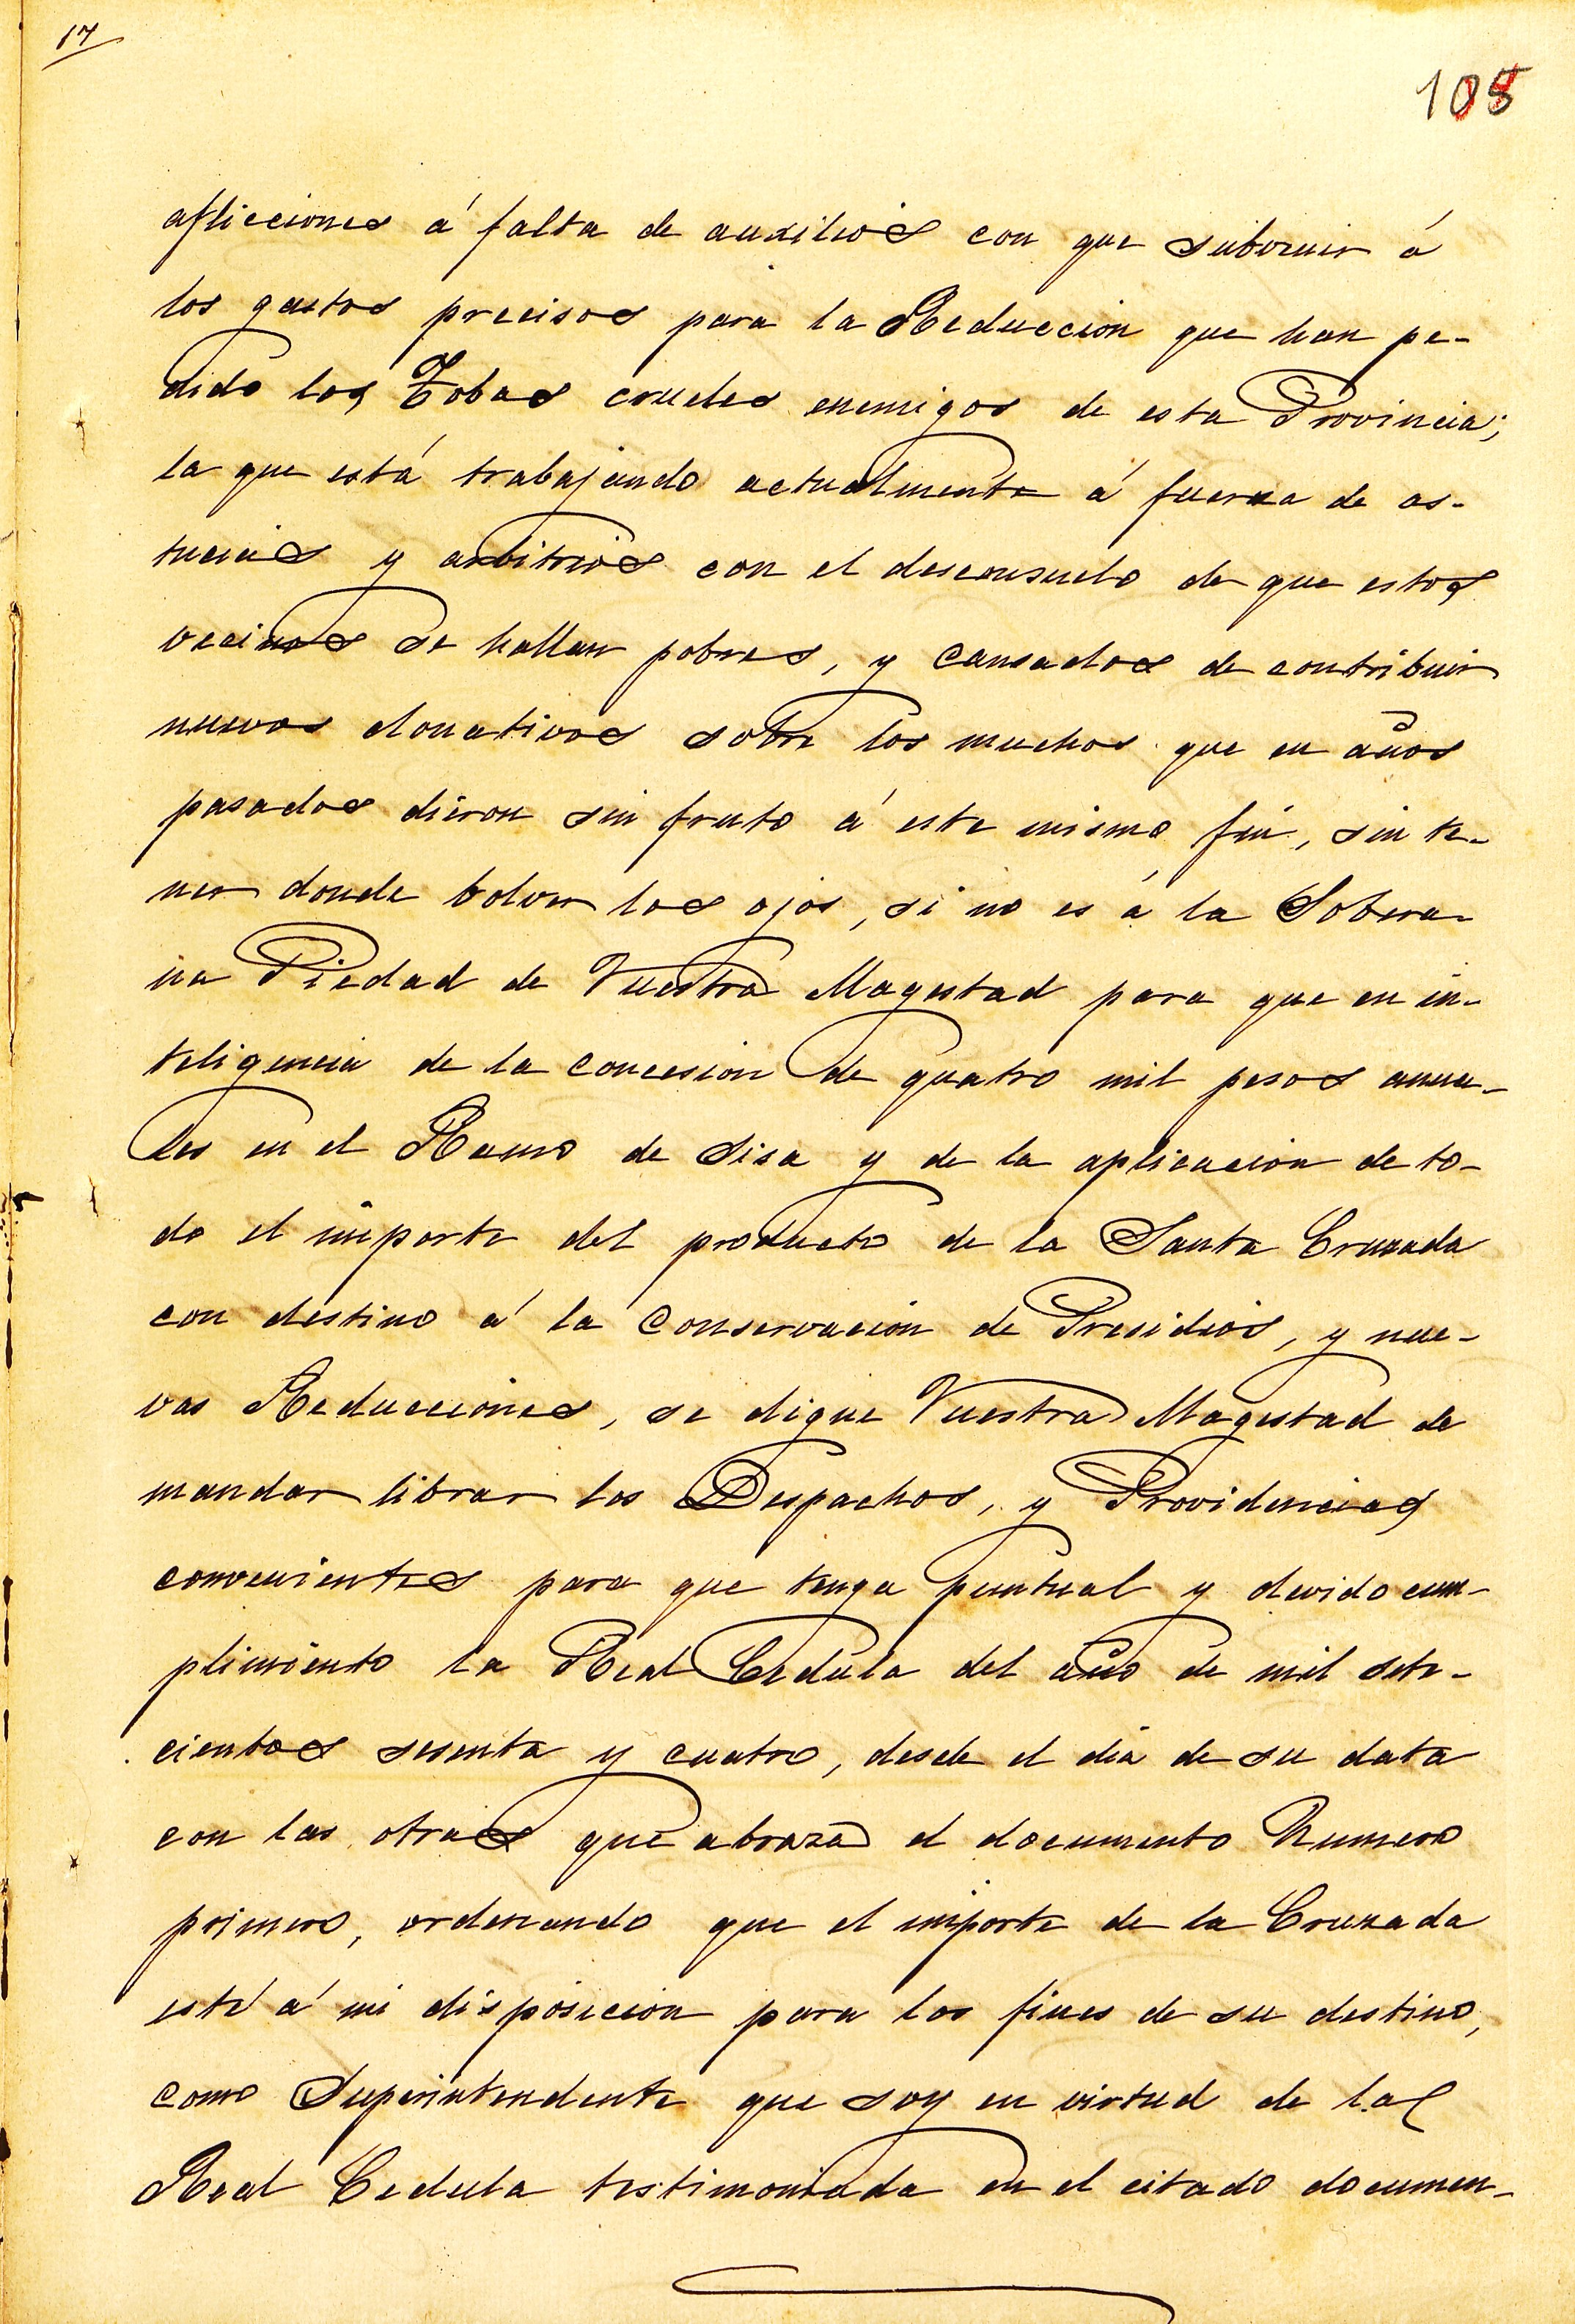 17
105
aflicciones á falta de auxilios con que subvenir á
los gastos precisos para la Reduccion que han pe-
dido los Tobas crueles enemigos de esta Provincia;
la que está trabajando actualmente á fuerza de as-
tucias y arbitrios con el desconsuelo de que estos
vecinos se hallan pobres, y cansados de contribuir
nuevos donativos sobre los muchos que en años
pasados dieron sin fruto á este mismo fin, sin te-
ner donde bolver los ojos, si no es á la Sobera-
na Piedad de Vuestra Magestad para que en in-
teligencia de la concesion de quatro mil pesos anua-
les en el Ramo de Sisa y de la aplicacion de to-
do el importe del producto de la Santa Cruzada
con destino á la conservacion de Presidios, y nue-
vas Reducciones, se digne Vuestra Magestad de
mandar librar los Despachos, y Providencias
convenientes para que tenga puntual y devido cum-
plimiento la Real Cedula del año de mil sete-
cientos sesenta y cuatro, desde el dia de su data
con las otras que abraza el documento Numero
primero, ordenando que el importe de la Cruzada
esté á mi disposicion para los fines de su destino,
como Superintendente que soy en virtud de la
Real Cedula testimoniada en el citado documen-